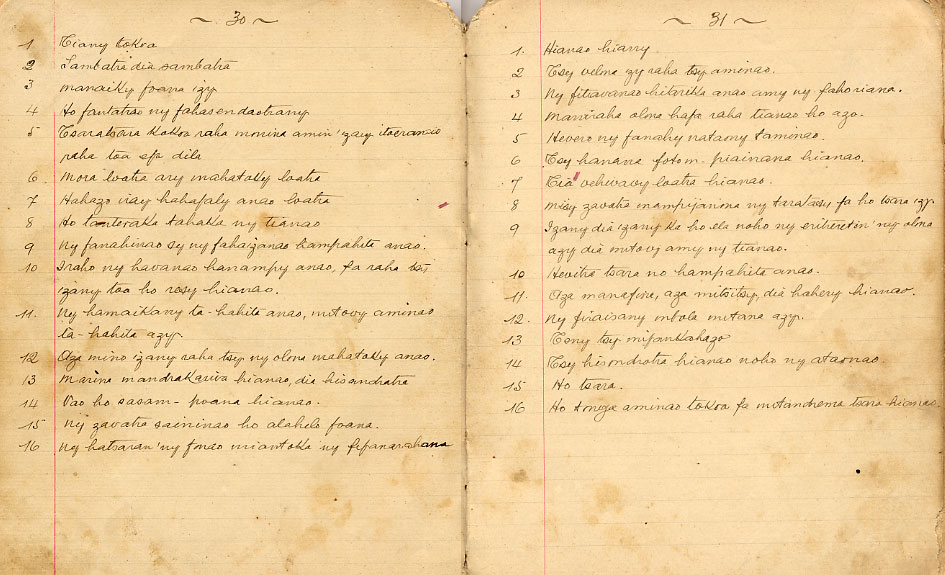 ~ 30 ~
1 Tiany tokoa
2 Sambatra dia sambatra
3 manaiky foana izy
4 Ho fantatrao ny fahasendaotrany
5 Tsaratsara kokoa raha monina amin'izany itoerancio
raha toa efa dila
6 Mora loatra ary mahatoky loatra
7 Hahazo iray hahafaly anao loatra
8 Ho tanteraka tahaka ny tianao
9 Ny fanahinao sy ny fahaizanao hampahita anao.
10 Iraho ny havanao hanampy anao, fa raha tsy
izany toa ho rosy hianao.
11. Ny hamaikany ta-hahita anao, mitovy aminao
ta-hahita azy.
12 Aza mino izany raha tsy ny olona mahatoky anao.
13 Marina mandrakariva hianao, dia hisandratra
14 Vao ho sasam-poana hianao.
15 Ny zavatra saininao ho alahelo foana.
16 Ny hatsaran'ny fonao miantoka ny fifanarahana
~ 31 ~
1. Hianao hiany
2 Tsy velona izy raha tsy aminao.
3 Ny fitiavanao hitarika anao amy ny fahoriana.
4 Maniraha olona hafa raha tianao ho azo.
5 Hevero ny fanahy nataony taminao.
6 Tsy hanana fotom-piainana hianao.
7 Tia vehivavy loatra hianao.
8 Misy zavatra mampijanona ny taratasy fa ho tsara izy.
9 Izany dia izany ka ho ela noho ny eritreritin'ny olona
azy dia mitovy amy ny tianao.
10 Hevitra tsara no hampahita anao.
11. Aza manafina, aza mitsitsy, dia hahery hianao.
12. Ny firaisany mbola mitana azy.
13 Teny tsy mifankahazo
14 Tsy hisondrotra hianao noho ny ataonao.
15 Ho tsara.
16 Ho tonga aminao tokoa fa mitandrema tsara hianao